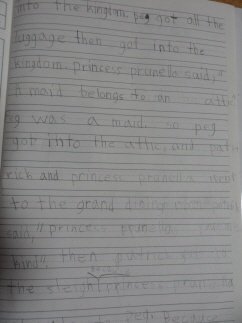 into the kingdom. peg got all the
luggage then got into the
kingdom. princess prunella said,"
a maid belongs to an attic"
peg was a maid. so peg
got into the attic, and pat
rick and princess prunella went
to the grand dining room
said, "princess prunella
kind". then patrick
the sleigh princess prunella
peg. Because